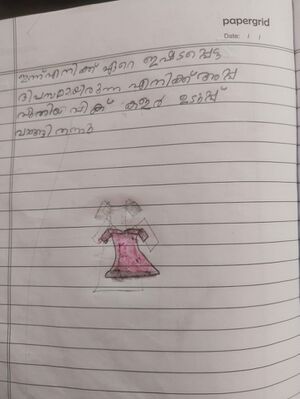 papergrid
Date: / /
ഇന്ന് എനിക്ക് ഏറെ ഇഷ്ടപ്പെട്ട
ദിവസമായിരുന്ന എനിക്ക് അപ്പ
പുതിയ പിങ്ക് കളർ ഉടുപ്പ്
വാങ്ങി തന്നു